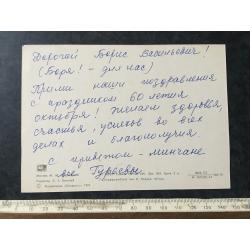 Дорогой Борис Васильевич!
(Боря! - для нас)
Прими наши поздравления
с праздником 60 летия
октября! Желаем здоровья,
счастья, успехов во всех
делах и благополучия.
с приветом - минчане
все Гурьевы